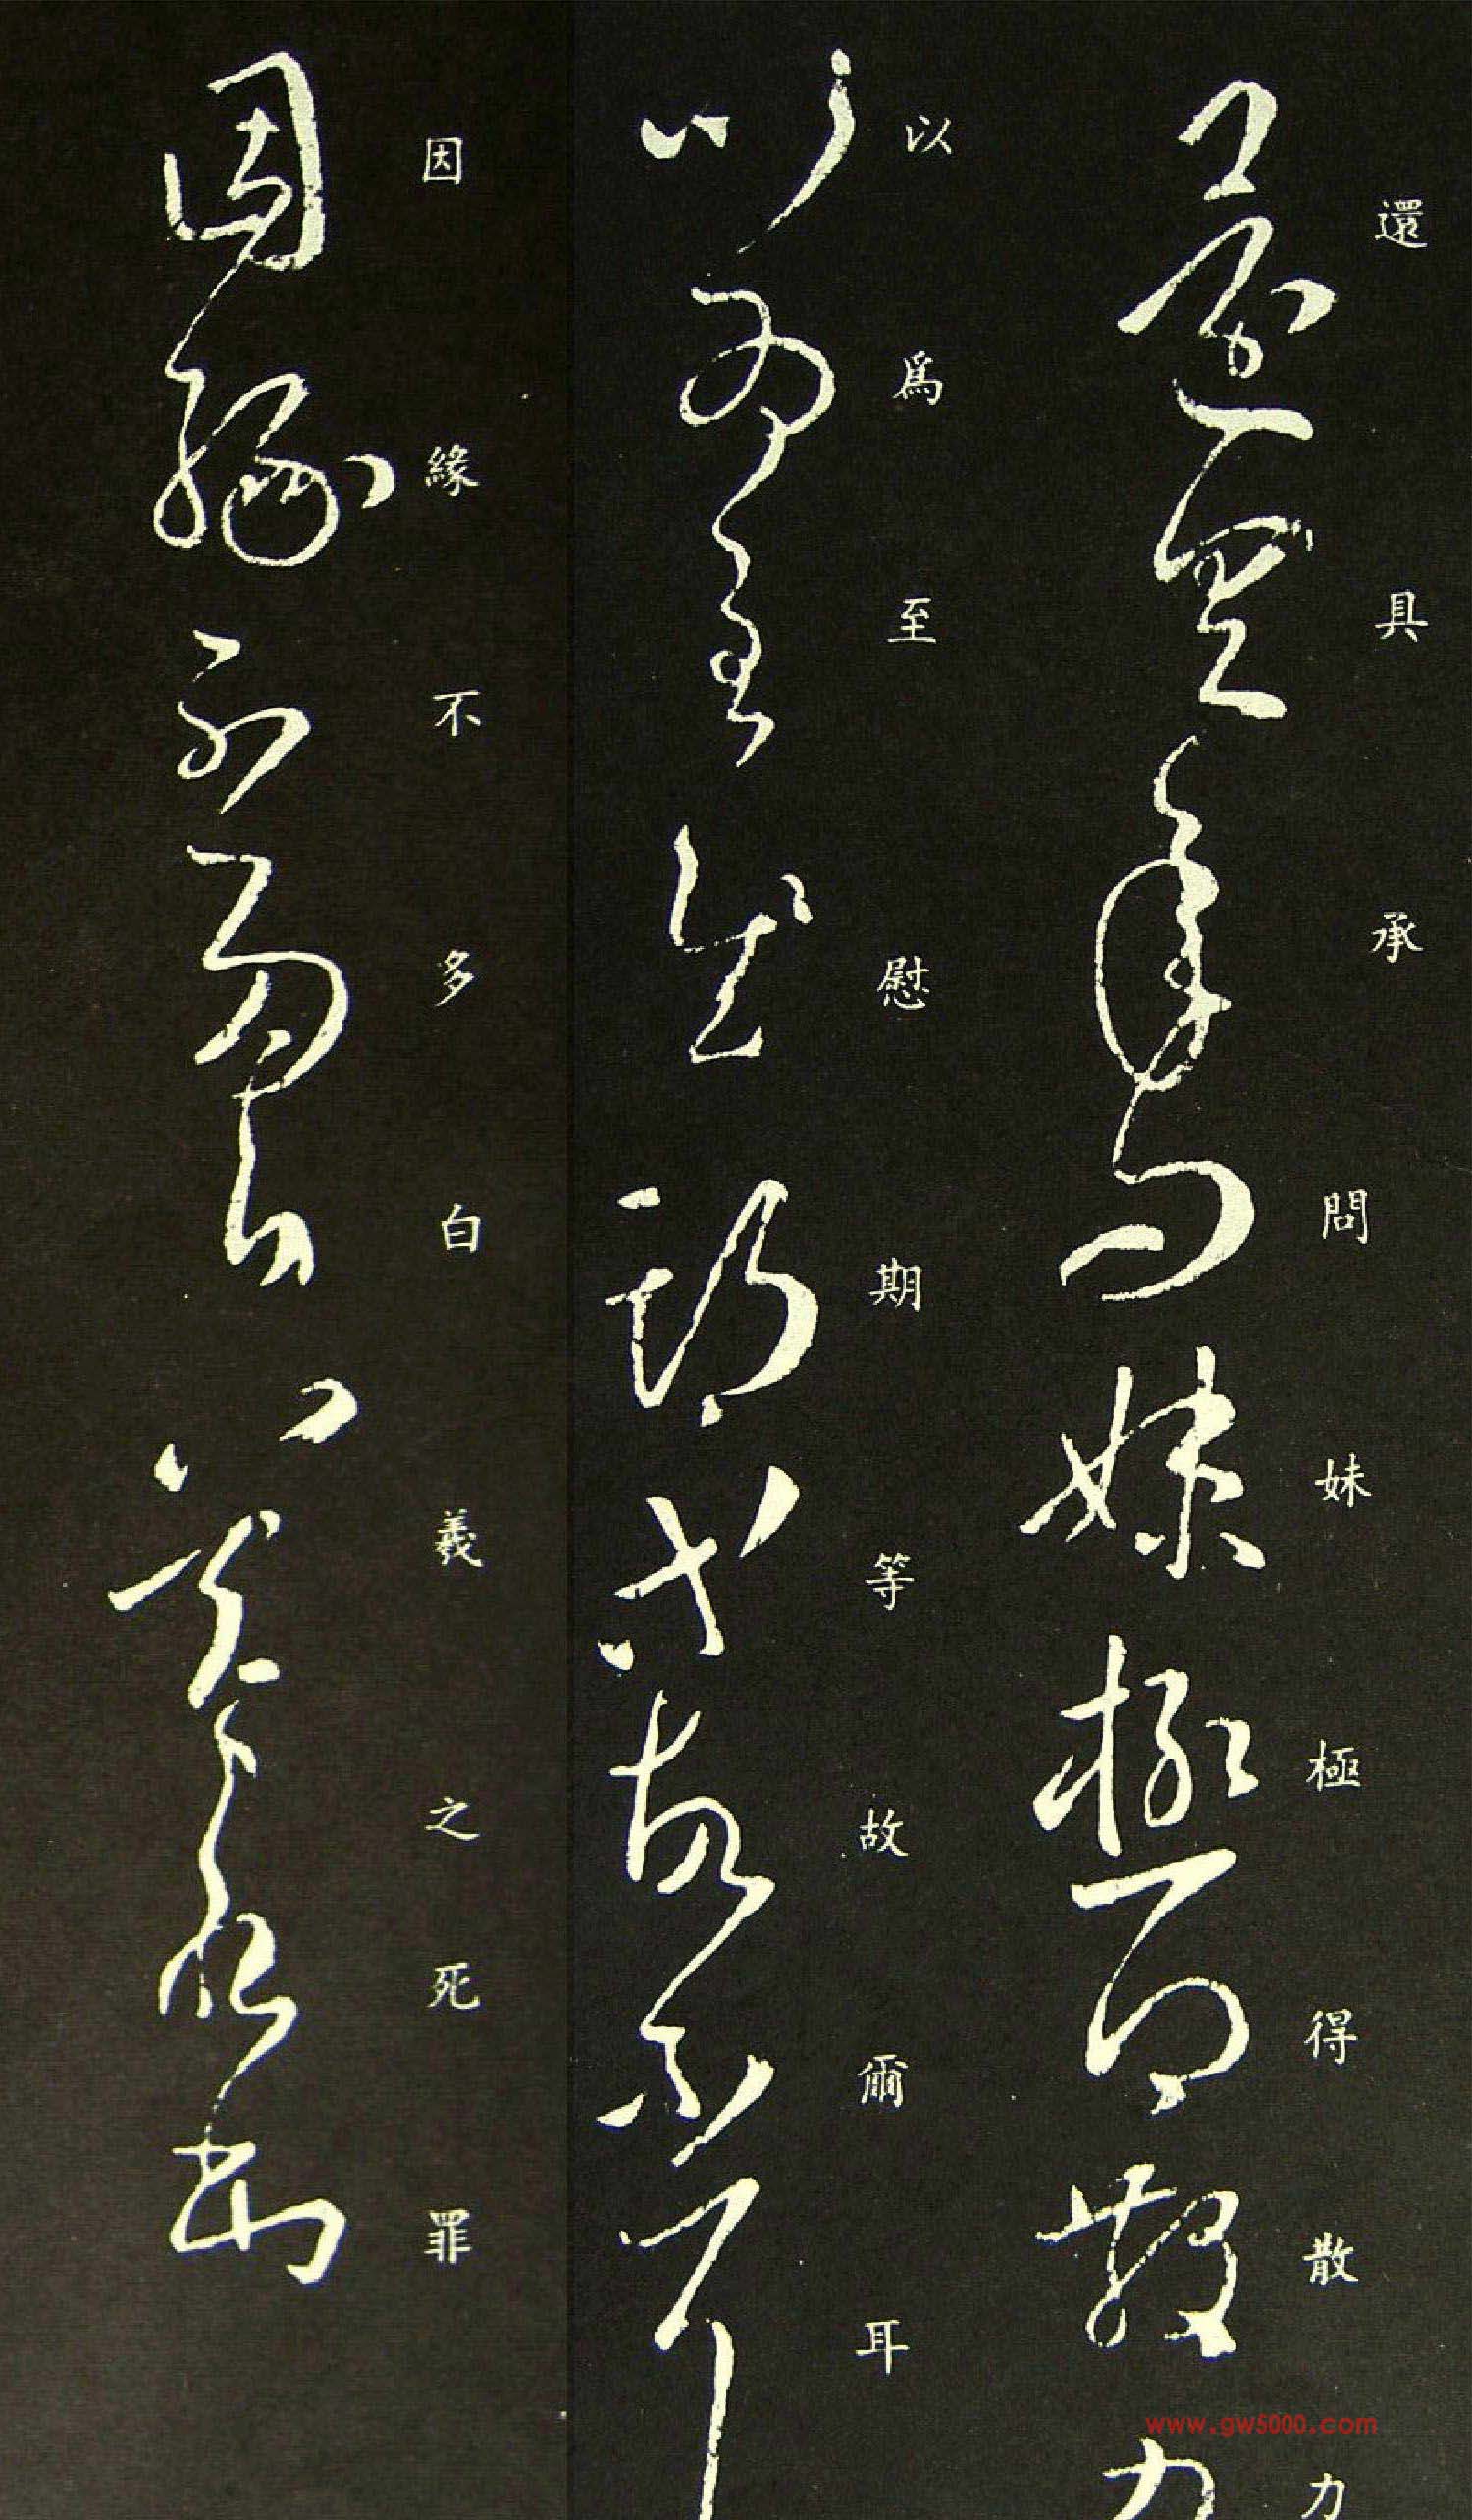 還具承問妹極得散力
以爲至慰期等故爾耳
因緣不多白羲之死罪
www.gw5000.com